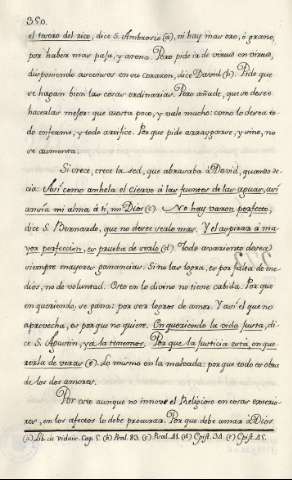 350.
el tesoro del rico, dice S. Ambrosio (a), ni hay mas oro, ó grano,
por haber mas paja, y arena. Pero pide ir de virtud en virtud,
disponiendo ascensos en su corazon, dice David (b). Pide que
se hagan bien las cosas ordinarias. Pero añade, que se desee
hacerlas mejor: que cuesta poco, y vale mucho: como lo desea to-
do enfermo, y todo artífice. Porque pide arraygarse, y vive, no
se aumenta.
Si crece, crece la sed, que abrasaba á David, quando de-
cia: Así como anhela el ciervo á las fuentes de las aguas, así
ansía mi alma á ti, mi Dios (c). No hay varon perfecto,
dice S. Bernardo, que no desee serlo mas. Y el aspirar á ma-
yor perfeccion, es prueba de serlo (d). Todo avariento desea
siempre mayores ganancias. Si no las logra, es por falta de me-
dios, no de voluntad. Esto en lo divino no tiene cabida. Porque
en queriendo, se gana: por ser logros de amor. Y así el que no
aprovecha, es porque no quiere. En queriendo la vida justa, di-
ce S. Agustin, ya la tenemos. Porque la justicia está, en que-
rerla de veras (e). Lo mismo en la malvada: porque todo es obra
de los dos amores.
Por esto aunque no innove el Religioso en cosas exterio-
res, en los afectos lo debe procurar. Porque debe amar á Dios
(a) Lib. de viduis. Cap. 5. (b) Psal. 83. (c) Psal. 41. (d) Epist. 34. (e) Epist. 45.